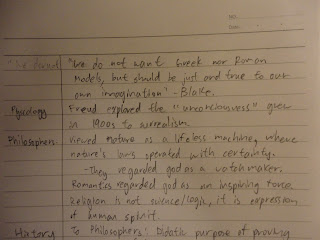 "We do not want Greek nor Roman
Models, but should be just and true to our
own imagination" - Blake.
Phycology Freud explored the "unconciousness" grew
in 1900s to surrealism.
Philosophers Viewed nature as a lifeless machine, where
nature's laws operated with certainty.
- They regarded god as a watchmaker.
Romantics regarded god as an inspiring force
Religion is not science/logic, it is expression
of human spirit.
History To Philosophers: Didatic purpose of proving